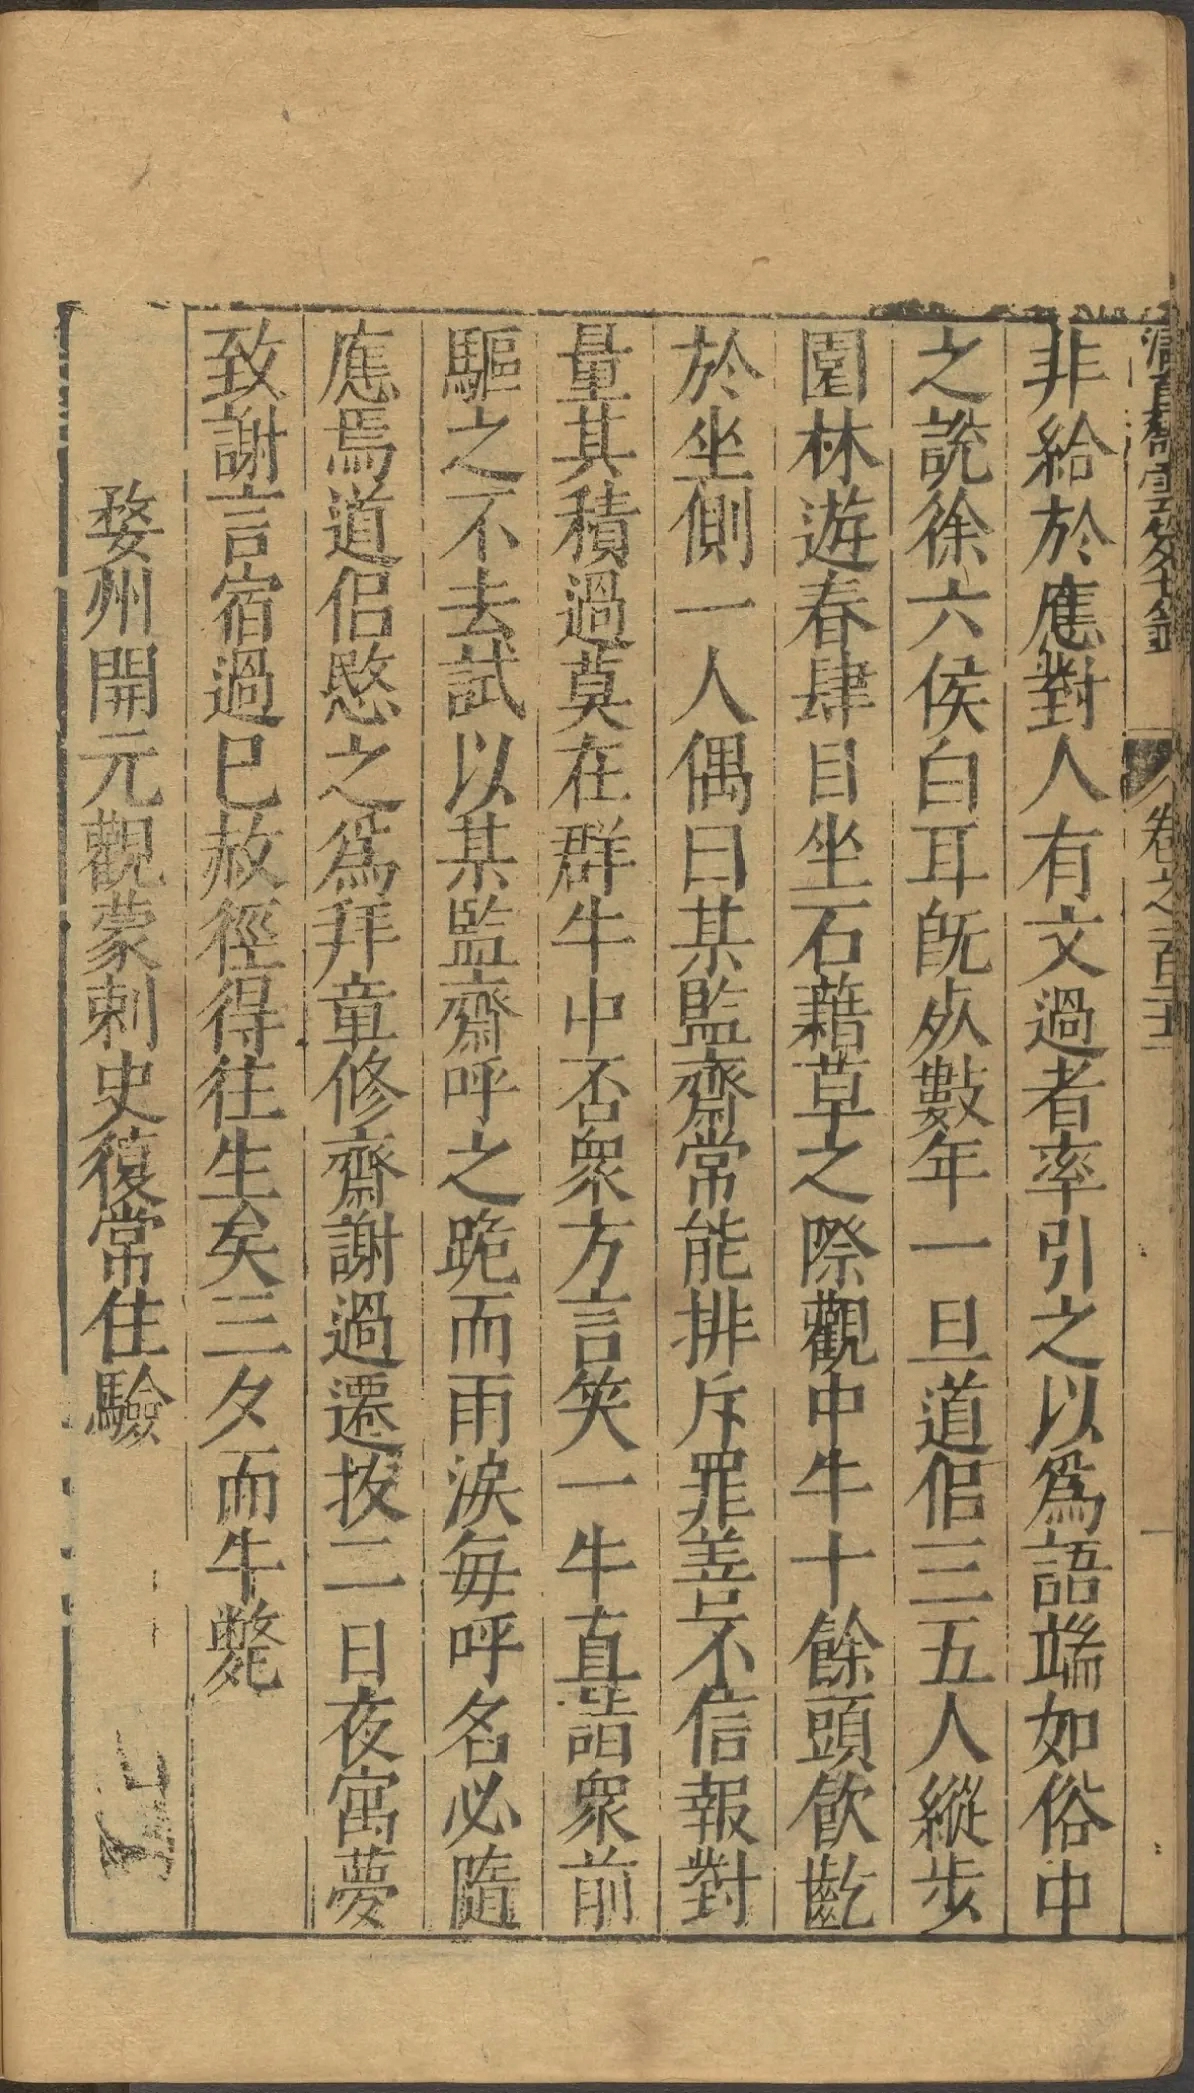 清眞齋雲笈七籤 卷之一百二十
非給於應對人有文過者率引之以爲語端如俗中
之說徐六侯白耳旣歿數年一旦道侶三五人縱步
園林遊春肆目坐石藉草之際觀中牛十餘頭飲齕
於坐側一人偶曰某監齋常能排斥罪善不信報對
量其積過莫在群牛中否衆方言笑一牛直詣衆前
驅之不去試以某監齋呼之跪而雨淚每呼名必隨
應焉道侶愍之爲拜章修齋謝過遷拔二日夜寓夢
致謝言宿過已赦徑得往生矣三夕而牛斃
婺州開元觀蒙刺史復常住驗